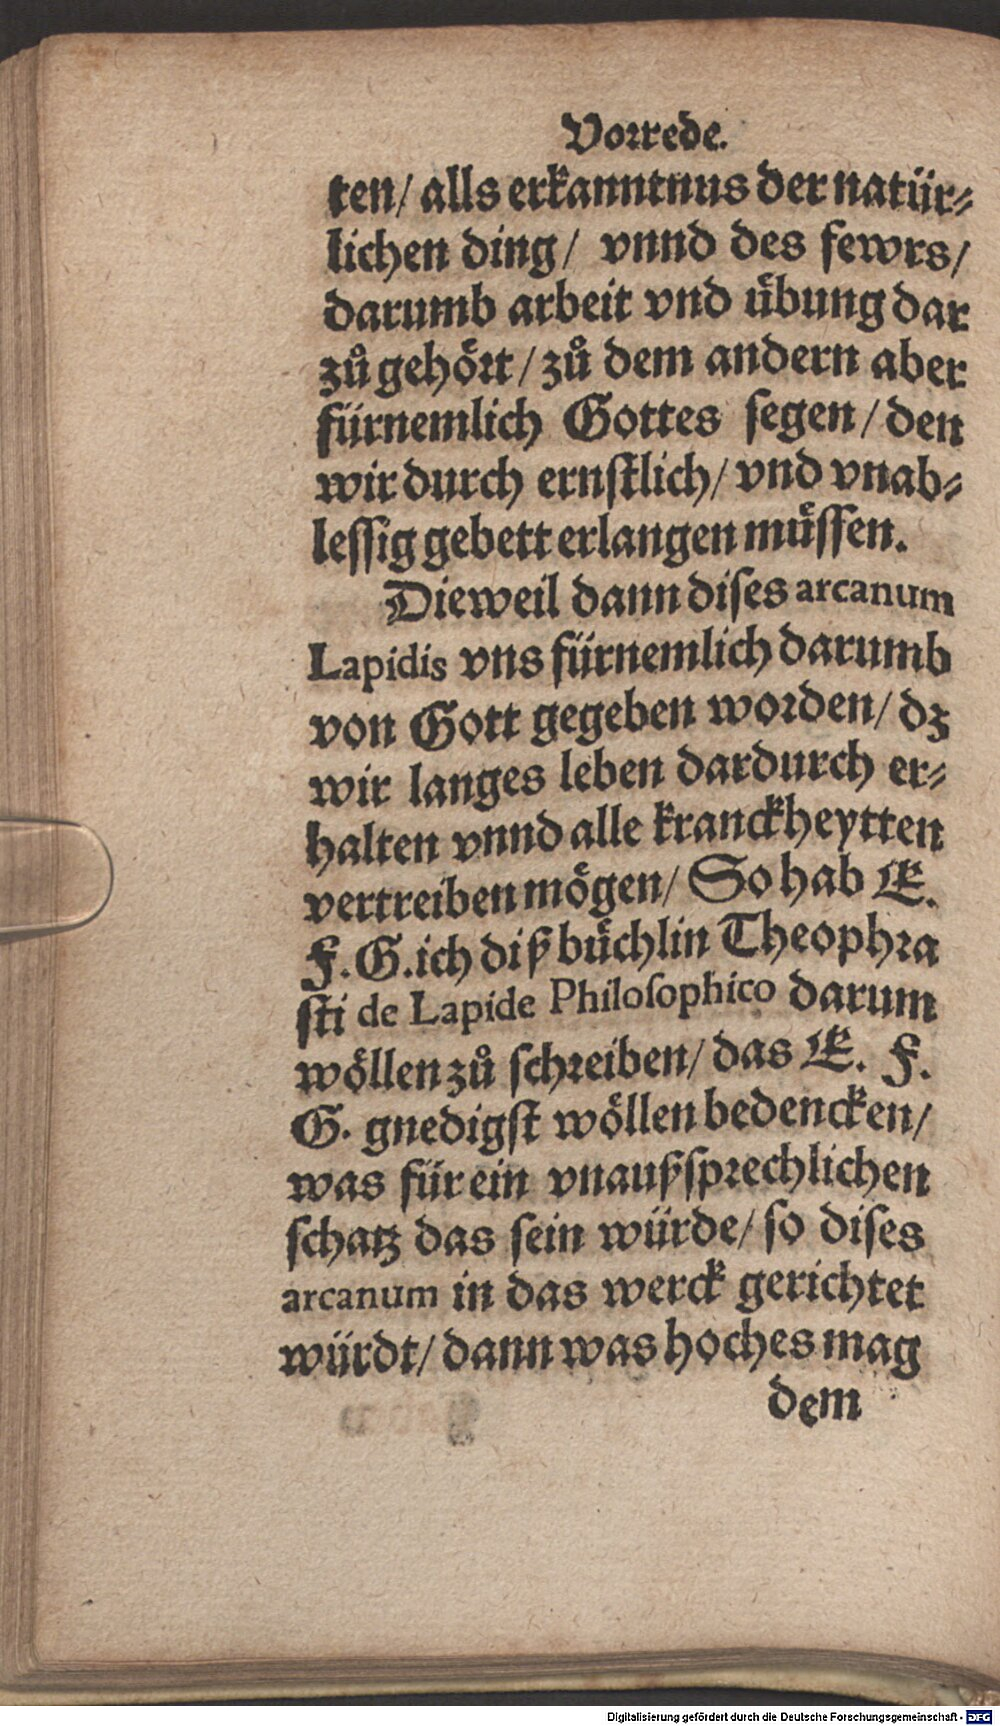 Vorrede.
ten/ alls erkanntnus der natür⸗
lichen ding/ vnnd des fewrs/
darumb arbeit vnd uͤbung dar
zuͦ gehoͤrt/ zuͦ dem andern aber
fürnemlich Gottes ſegen/ den
wir durch ernſtlich/ vnd vnab⸗
leſſig gebett erlangen muͤſſen.
Dieweil dann diſes arcanum
Lapidis vns fürnemlich darumb
von Gott gegeben worden/ dz
wir langes leben dardurch er⸗
halten vnnd alle kranckheytten
vertreiben moͤgen/ So hab E.
F. G. ich diß buͤchlin Theophra
ſti de Lapide Philoſophico darum
woͤllen zuͦ ſchreiben/ das E. F.
G. gnedigſt woͤllen bedencken/
was für ein vnaußſprechlichen
ſchatz das ſein würde/ ſo diſes
arcanum in das werck gerichtet
würdt/ dann was hoches mag
dem
Digitalisierung gefördert durch die Deutsche Forschungsgemeinschaft - DFG